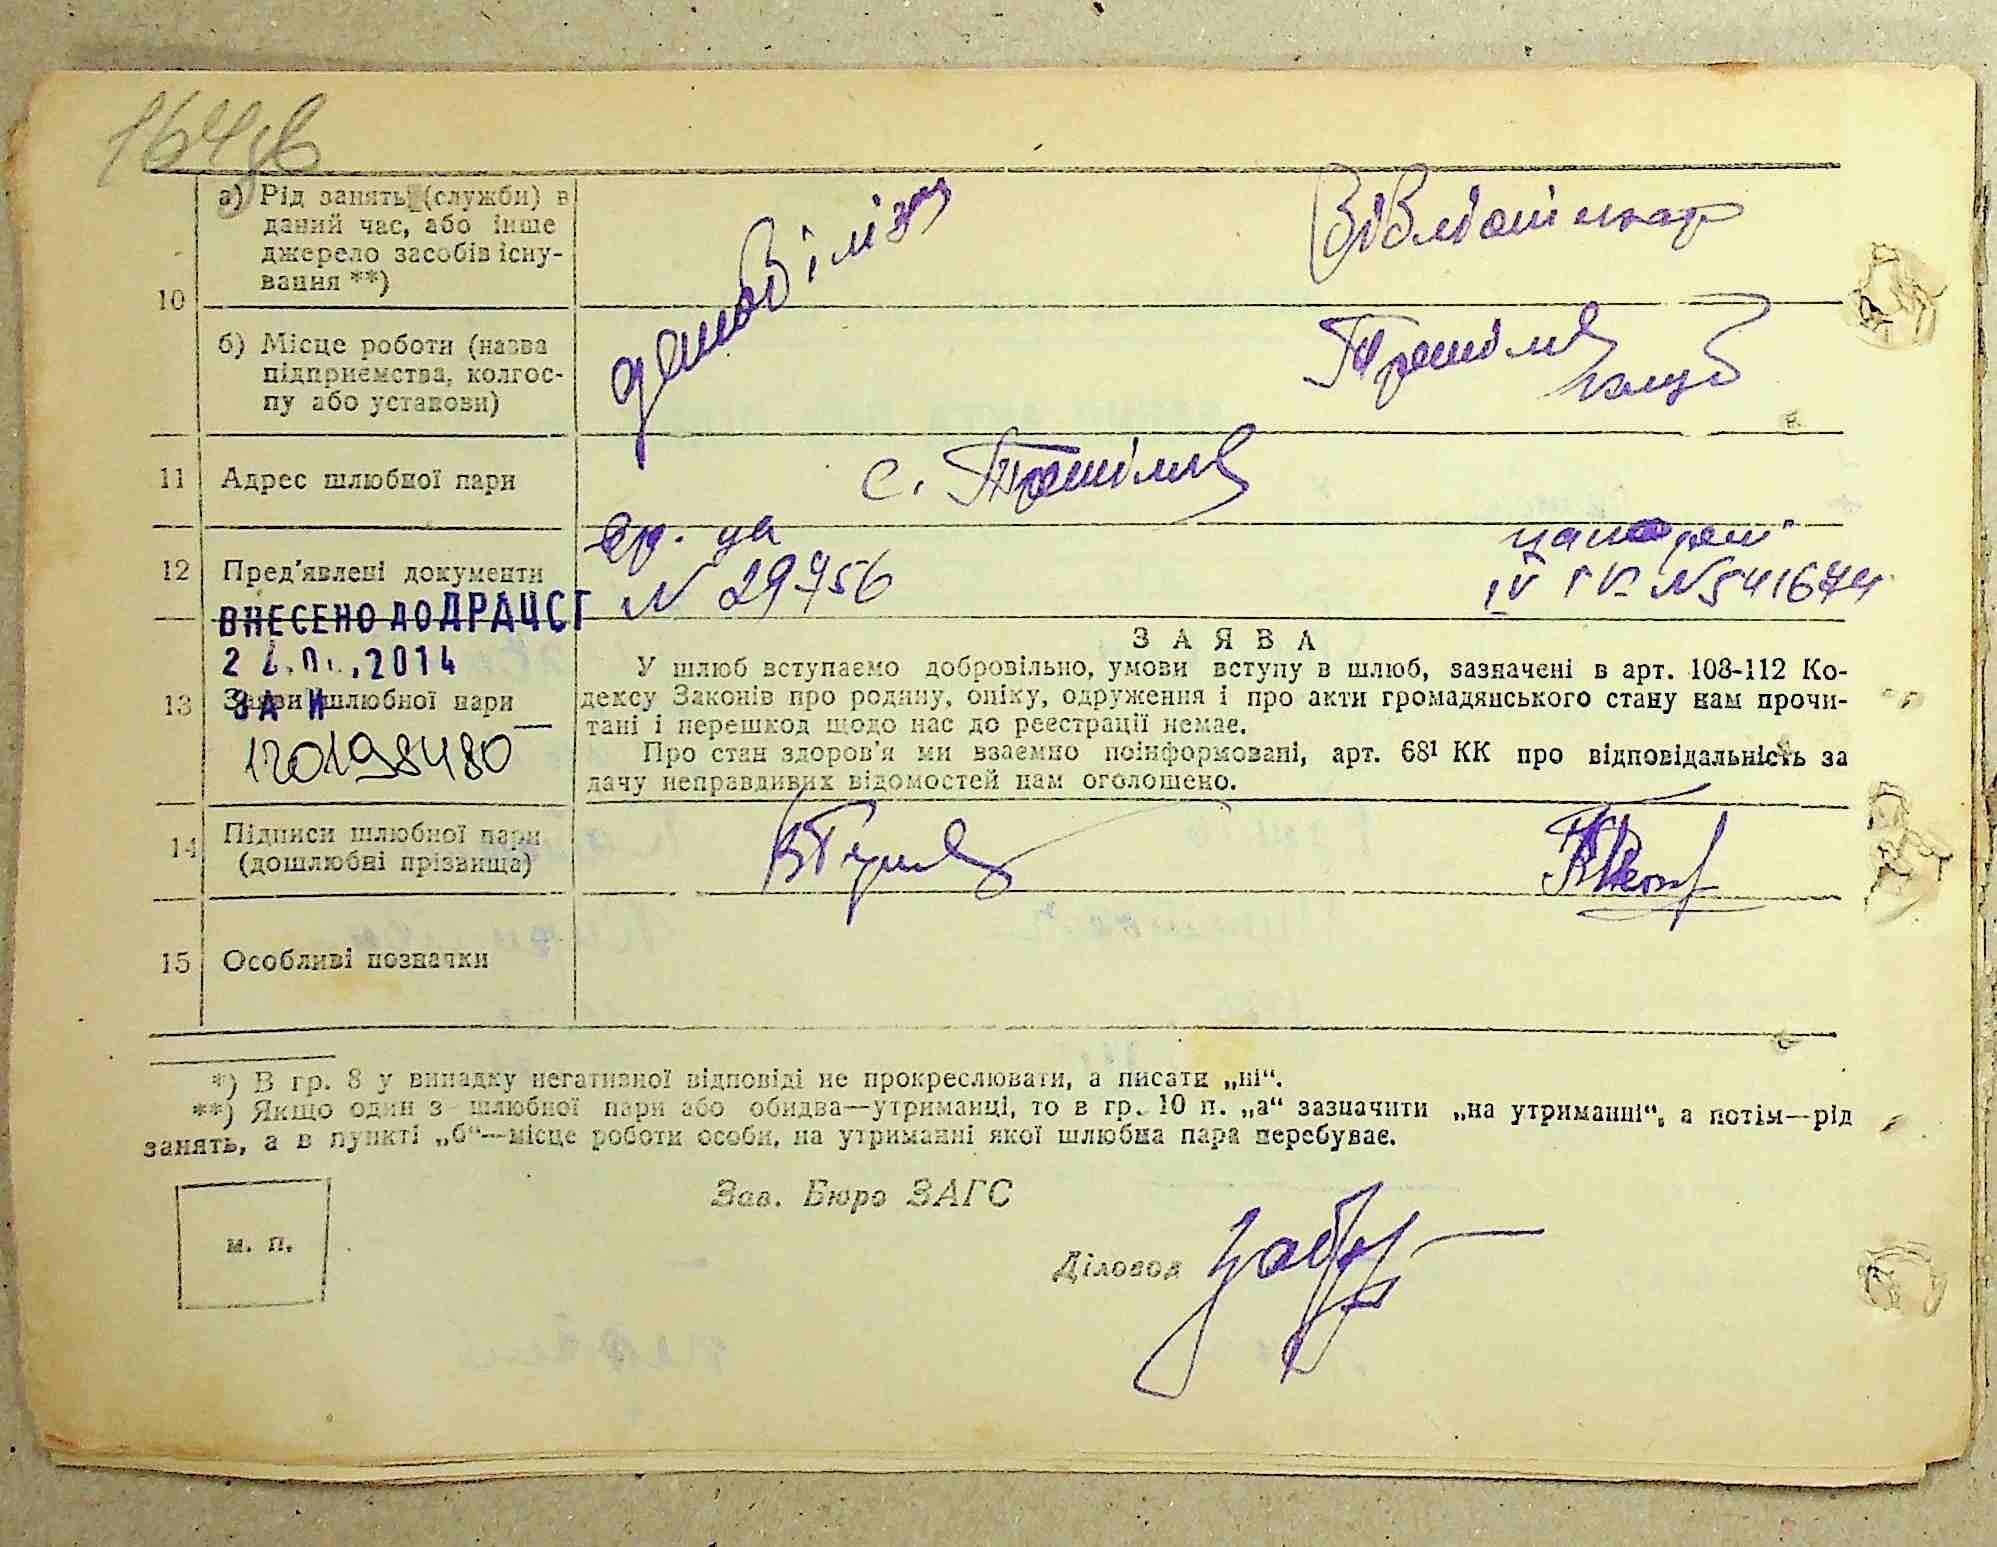 164зв
а) Рід занять (служби) в
даний час, або інше
джерело засобів існу-
вання **)
демобілізов
Бібліотекар
10
б) Місце роботи (назва
підприємства, колгос-
пу або установи)
11 Адрес шлюбної пари
с.
12 Пред'явлені документи
N 29756
паспорт
IV N 541674
ВНЕСЕНО ДО ДРАЦСГ
2014
ЗА №
120198480
13 Заяви шлюбної пари
ЗАЯВА
У шлюб вступаємо добровільно, умови вступу в шлюб, зазначені в арт. 108-112 Ко-
дексу Законів про родину, опіку, одруження і про акти громадянського стану нам прочи-
тані і перешкод щодо нас до реєстрації немає.
Про стан здоров'я ми взаємно поінформовані, арт. 68¹ КК про відповідальність за
дачу неправдивих відомостей нам оголошено.
14 Підписи шлюбної пари
(дошлюбні прізвища)
15 Особливі позначки
*) В гр. 8 у випадку негативної відповіді не прокреслювати, а писати „ні“.
**) Якщо один з шлюбної пари або обидва—утриманці, то в гр. 10 п. „а“ зазначити „на утриманні“, а потім—рід
занять, а в пункті „б“—місце роботи особи, на утриманні якої шлюбна пара перебуває.
Зав. Бюро ЗАГС
м. п.
Діловод